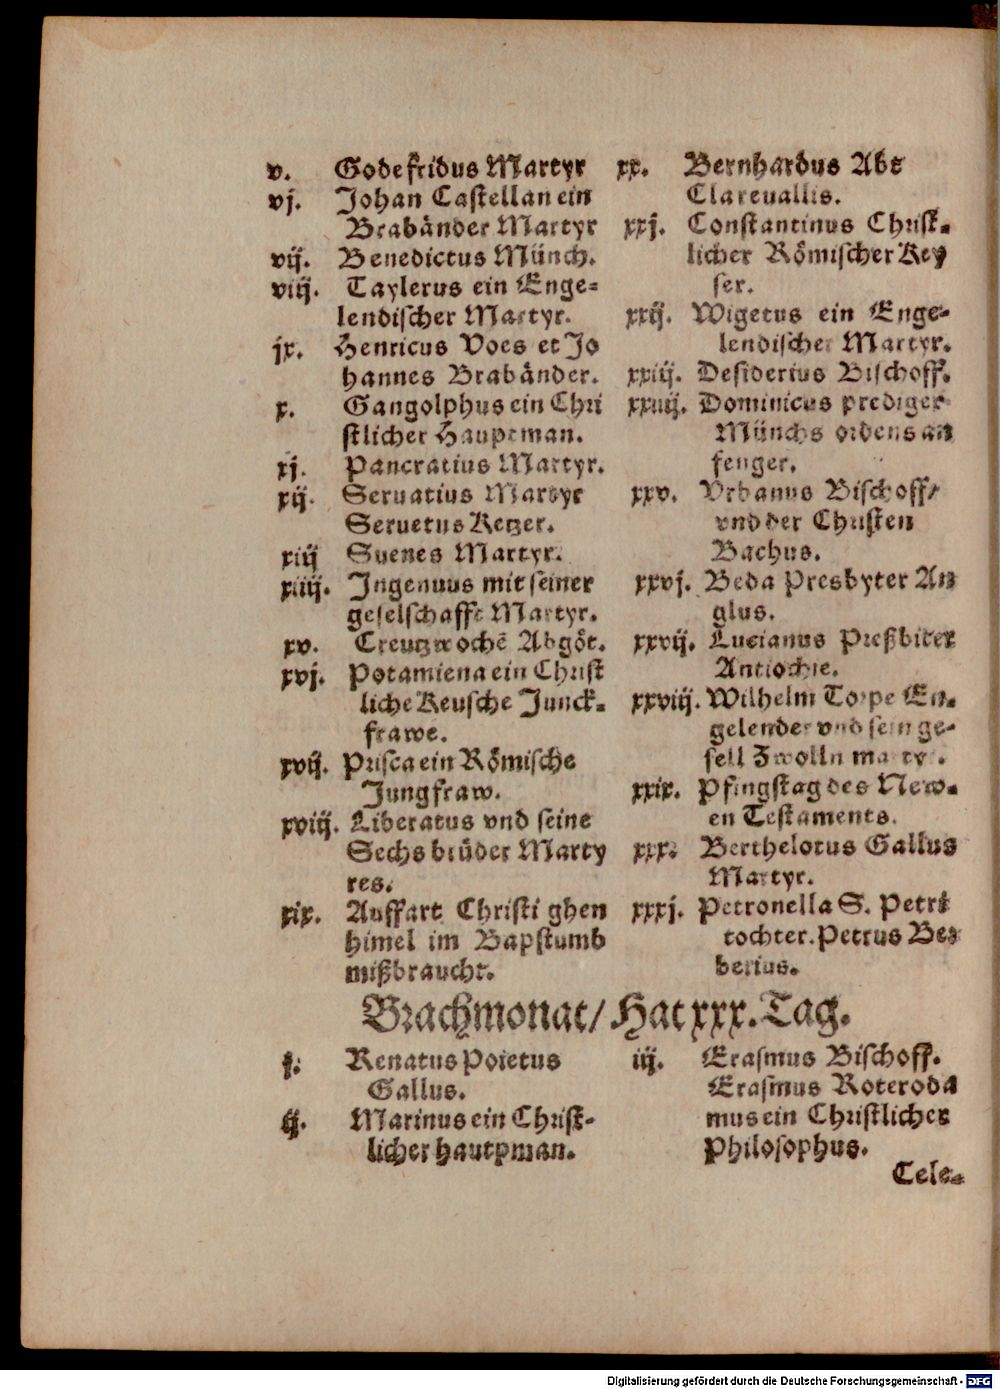 v. Godefridus Martyr
vj. Johan Castellan ein
Brabänder Martyr
vij. Benedictus Münch.
viij. Taylerus ein Enge=
lendischer Martyr.
jx. Henricus Voes et Jo
hannes Brabänder.
x. Gangolphus ein Chri
stlicher Hauptman.
xj. Pancratius Martyr.
xij. Seruatius Martyr
Seruetus Ketzer.
xiij Suenes Martyr.
xiiij. Ingenuus mit seiner
geselschafft Martyr.
xv. Creutzwochē Abgöt.
xvj. Potamiena ein Christ
liche Keusche Junck-
frawe.
xvij. Prisca ein Römische
Jungfraw.
xviij. Liberatus vnd seine
Sechs brüder Marty
res.
xix. Auffart Christi ghen
himel im Bapstumb
mißbraucht.
xx. Bernhardus Abt
Clareuallis.
xxj. Constantinus Christ-
licher Römischer Key
ser.
xxij. Wigetus ein Enge-
lendischer Martyr.
xxiij. Desiderius Bischoff.
xxiiij. Dominicus prediger
Münchs ordens an
fenger.
xxv. Vrbanus Bischoff/
vnd der Christen
Bachus.
xxvj. Beda Presbyter An
glus.
xxvij. Lucianus Preßbiter
Antiochie.
xxviij. Wilhelm Torpe En-
gelender vnd sein ge-
sell Zwolln martyr.
xxix. Pfingstag des New-
en Testaments.
xxx. Berthelotus Gallus
Martyr.
xxxj. Petronella S. Petri
tochter. Petrus Ber
berius.
Brachmonat/ Hat xxx. Tag.
j. Renatus Poietus
Gallus.
ij. Marinus ein Christ-
licher hautpman.
iij. Erasmus Bischoff.
Erasmus Roteroda
mus ein Christlicher
Philosophus.
Cele-
Digitalisierung gefördert durch die Deutsche Forschungsgemeinschaft - DFG